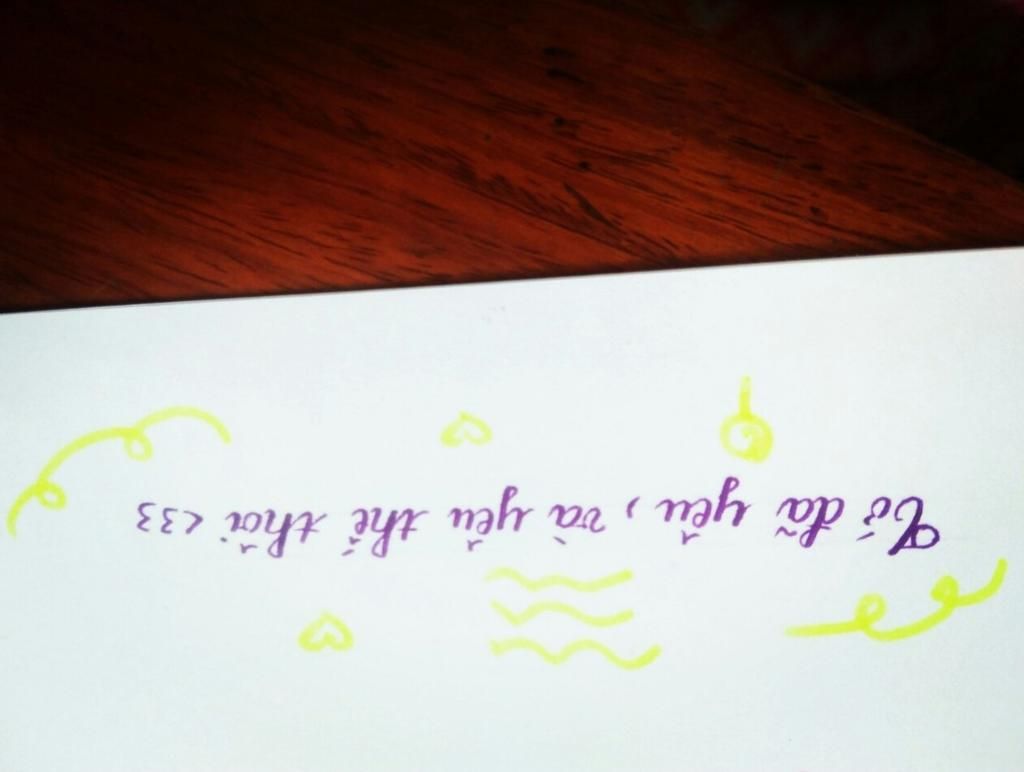 Tớ đã yêu, và yêu thế thôi <33